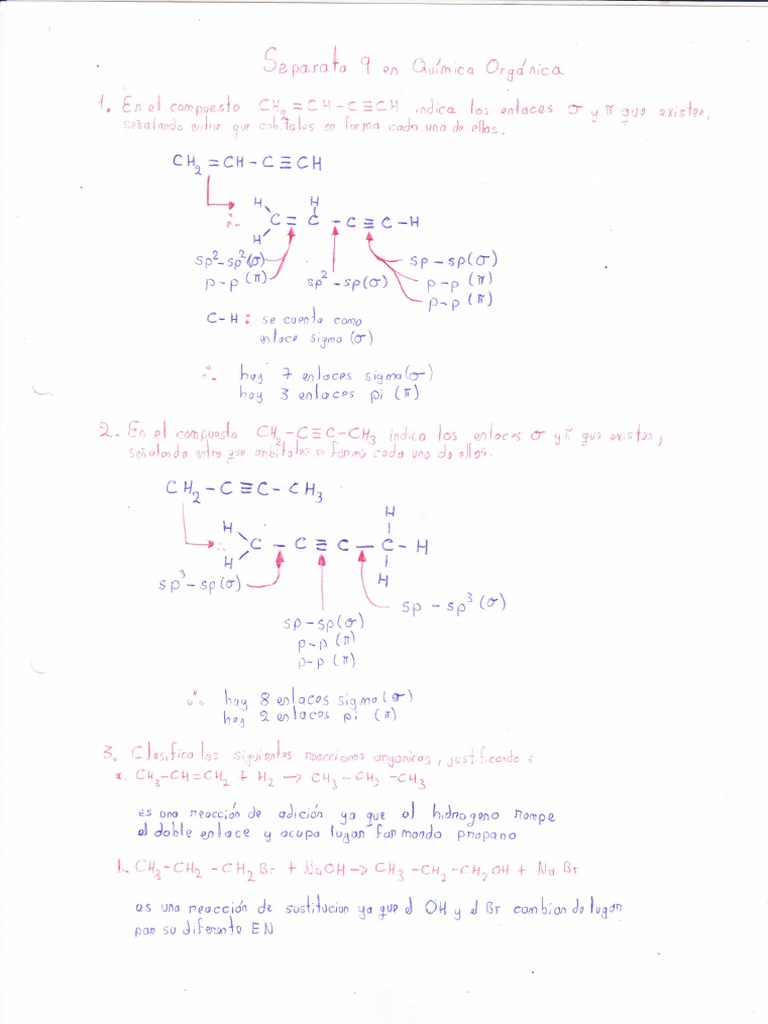 Separata 9 en Química Orgánica
1. En el compuesto CH₂=CH-C≡CH indica los enlaces σ y π que existen,
señalando entre que orbitales se forma cada uno de ellos.
CH₂=CH-C≡CH
H H
C = C - C ≡ C - H
H
sp²-sp²(σ) sp - sp(σ)
p-p (π) sp²-sp(σ) p-p (π)
p-p (π)
C-H: se cuenta como
enlace sigma (σ)
∴ hay 7 enlaces sigma (σ)
hay 3 enlaces pi (π)
2. En el compuesto CH₂-C≡C-CH₃ indica los enlaces σ y π que existen,
señalando entre que orbitales se forma cada uno de ellos.
CH₂-C≡C-CH₃
H H
C - C ≡ C - C - H
H H
sp³-sp(σ) sp - sp³(σ)
sp-sp(σ)
p-p (π)
p-p (π)
∴ hay 8 enlaces sigma (σ)
hay 2 enlaces pi (π)
3. Clasifica las siguientes reacciones organicas, justificando:
a. CH₃-CH=CH₂ + H₂ → CH₃-CH₂-CH₃
es una reacción de adición ya que el hidrogeno rompe
el doble enlace y ocupa lugar formando propano
b. CH₃-CH₂-CH₂Br + NaOH → CH₃-CH₂-CH₂OH + NaBr
es una reacción de sustitucion ya que el OH y el Br cambian de lugar
por su diferente EN